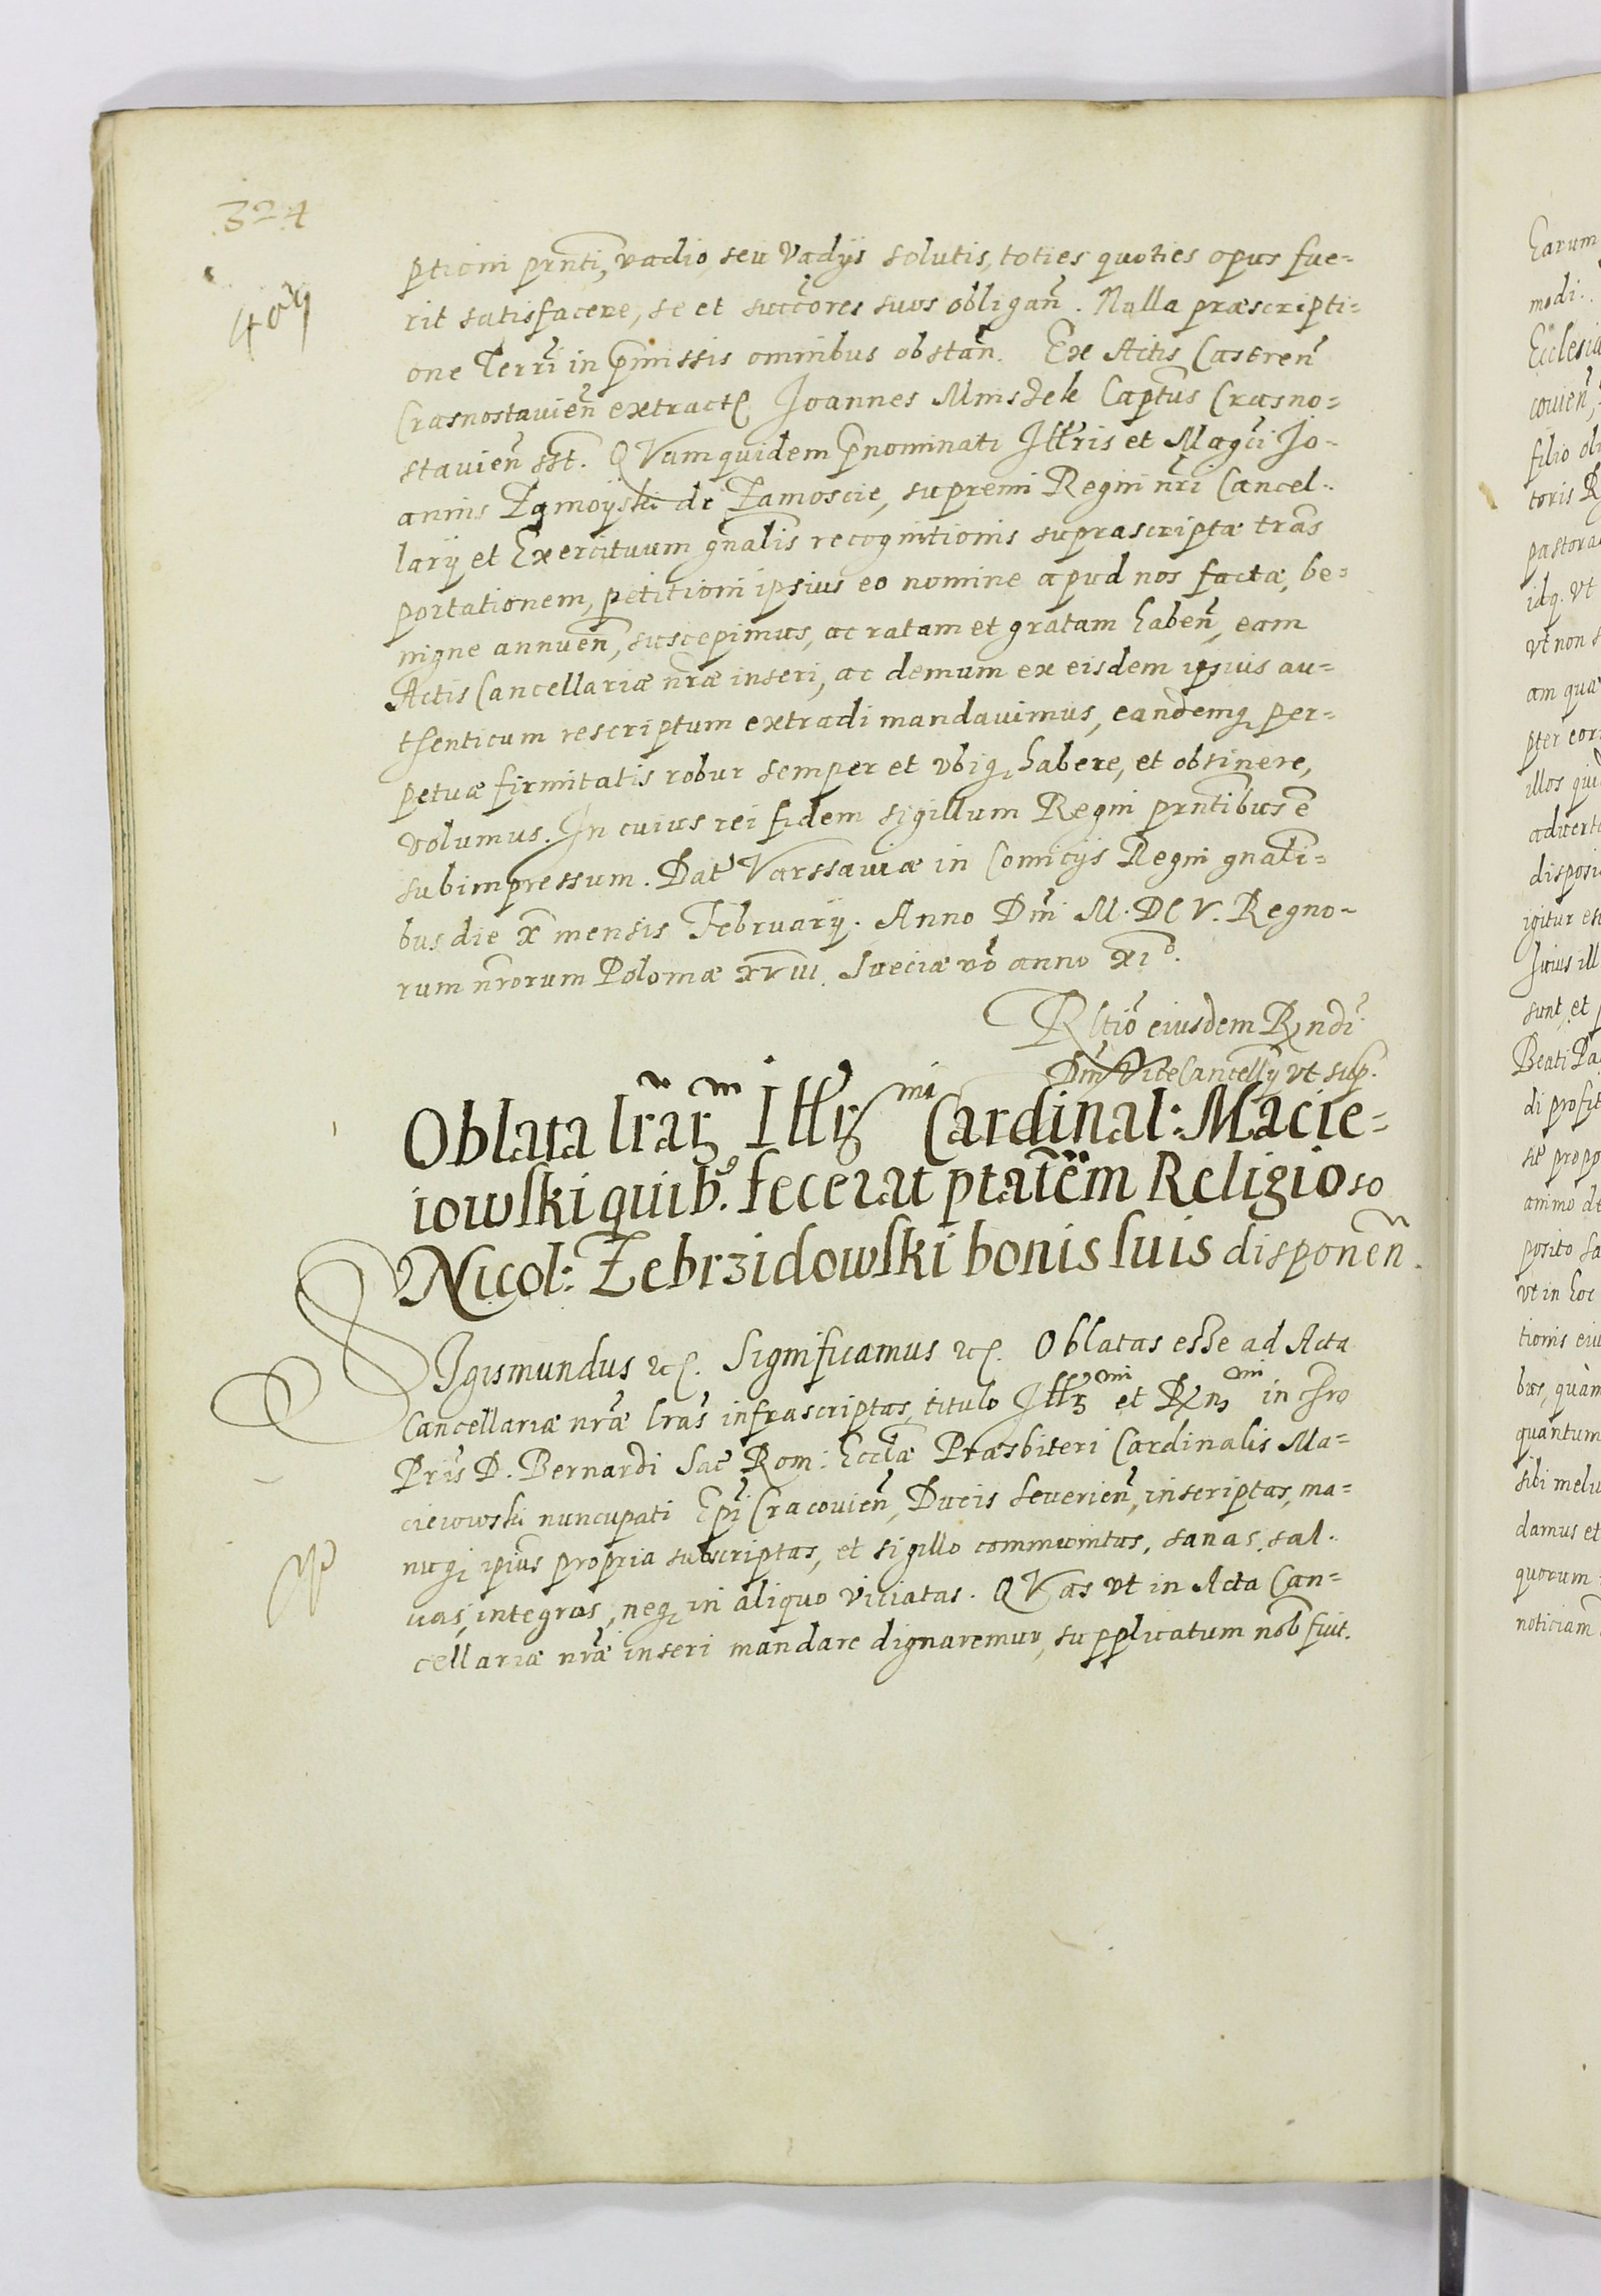 324
409
ptioni prnti, vadio, seu Vadÿs solutis, toties quoties opus fue-
rit satisfacere, se et succores suos obligan. Nulla præscripti-
one Terri in pmissis omnibus obstan. Ex Actis Castren
Crasnostavien extract. Joannes Mnisdek Captus Crasno-
stavien sst. QVamquidem pnominati Illris et Magci Jo-
annis Zamoÿski de Zamoscie, supremi Regni nri Cancel-
larÿ et Exercituum gnalis recognitionis suprascriptæ tras
portationem, petitioni ipsius eo nomine apud nos factæ, be-
nigne annuen, suscepimus, ac ratam et gratam haben, eam
Actis Cancellariæ nræ inseri, ac demum ex eisdem ipsius au-
thenticum rescriptum extradi mandavimus, eandemq per-
petuæ firmitatis robur semper et vbiq habere, et obtinere,
volumus. In cuius rei fidem sigillum Regni prntibus e
subimpressum. Dat Varssaviæ in Comicÿs Regni gnali-
bus die X mensis Februarÿ. Anno Dni M.DC V. Regno-
rum nrorum Poloniæ XVIII. Sueciæ vo anno XIo.
Rltio eiusdem Rndi
Dni ViceCancellÿ vt sup.
Oblata lrar Illrmi Cardinal: Macie-
iowski quib. fecerat ptatem Religioso
Nicol: Zebrzidowski bonis suis disponen.
SIgismundus etc. Significamus etc. Oblatas esse ad Acta
Cancellariæ nræ lras infrascriptas, titulo Illrmi et Rxnmi in Chro
Pris D. Bernardi Sac Rom: Eccliæ Præsbiteri Cardinalis Ma-
cieiowski nuncupati Epi Cracovien, Ducis Severien, inscriptas, ma-
nuq ipius propria subscriptas, et sigillo communitas, sanas, sal-
vas, integras, neq in aliquo vitiatas. QVas vt in Acta Can-
cellariæ nræ inseri mandare dignaremur, supplicatum nob fuit.